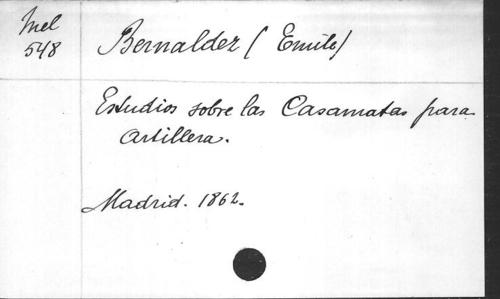 Mel
548
Bernaldez (Emile)
Estudios sobre las Casamatas para
Artillera.
Madrid. 1862.